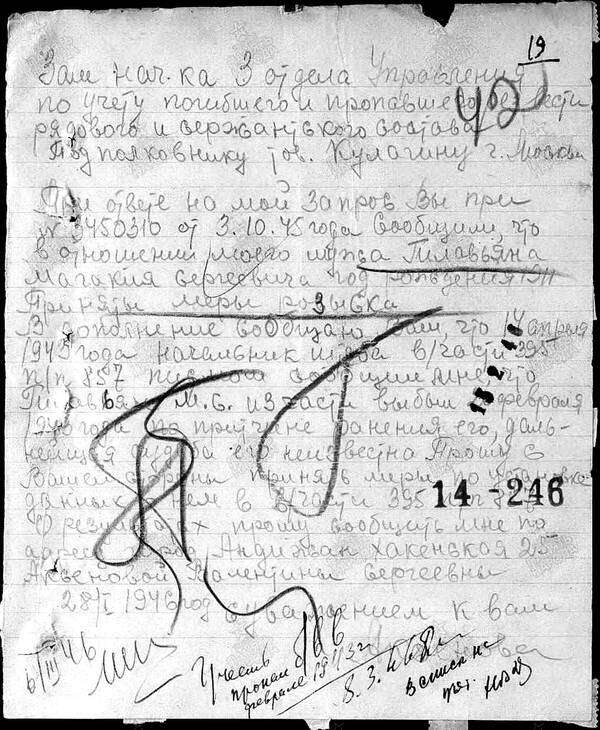 19
Зам нач.ка 3 отдела Управления
по учету погибшего и пропавшего без вести
рядового и сержантского состава
Подполковнику тов. Кулагину г. Москва
При ответе на мой запрос Вы при
№ 3450310 от 3.10.45 года Сообщили, что
в отношении моего мужа Гилавьяна
Магакия Сергеевича год рождения
Приняты меры розыска
В дополнение сообщаю Вам, что 14 апреля
1943 года начальник штаба в/части 395
п/п 857 письмом сообщил мне что
М.С. из части выбыл февраля
года по причине ранения его, даль-
нейшая судьба его неизвестна Прошу с
Вашей стороны принять меры по установке
данных о нем в в/части 395
О результатах прошу сообщить мне по
адресу гор. Андижан Хакенская 25
Аксеновой Валентины Сергеевны
28/I 1946 год с уважением к вам
14-246
6/III 46
Учесть
пропал б/в
феврале 1943 г
8.3.46